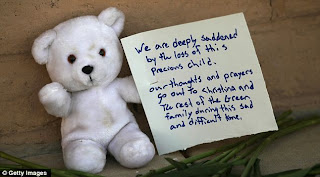 We are deeply saddened
by the loss of this
Precious child.
our thoughts and prayers
go out to christina and
The rest of the Green
family during this sad
and difficult time.
© Getty Images